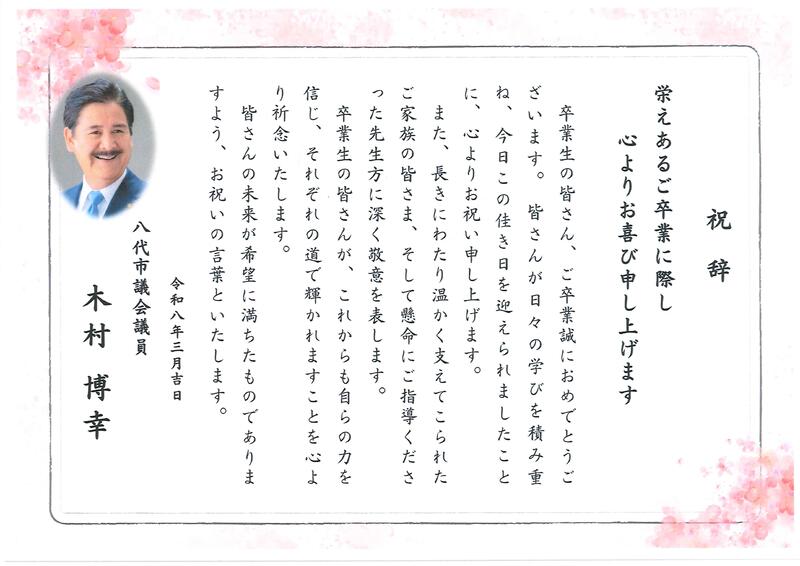 祝辞
栄えあるご卒業に際し
心よりお喜び申し上げます
卒業生の皆さん、ご卒業誠におめでとうご
ざいます。皆さんが日々の学びを積み重
ね、今日この佳き日を迎えられましたこと
に、心よりお祝い申し上げます。
また、長きにわたり温かく支えてこられた
ご家族の皆さま、そして懸命にご指導くださ
った先生方に深く敬意を表します。
卒業生の皆さんが、これからも自らの力を
信じ、それぞれの道で輝かれますことを心よ
り祈念いたします。
皆さんの未来が希望に満ちたものでありま
すよう、お祝いの言葉といたします。
令和八年三月吉日
八代市議会議員
木村博幸